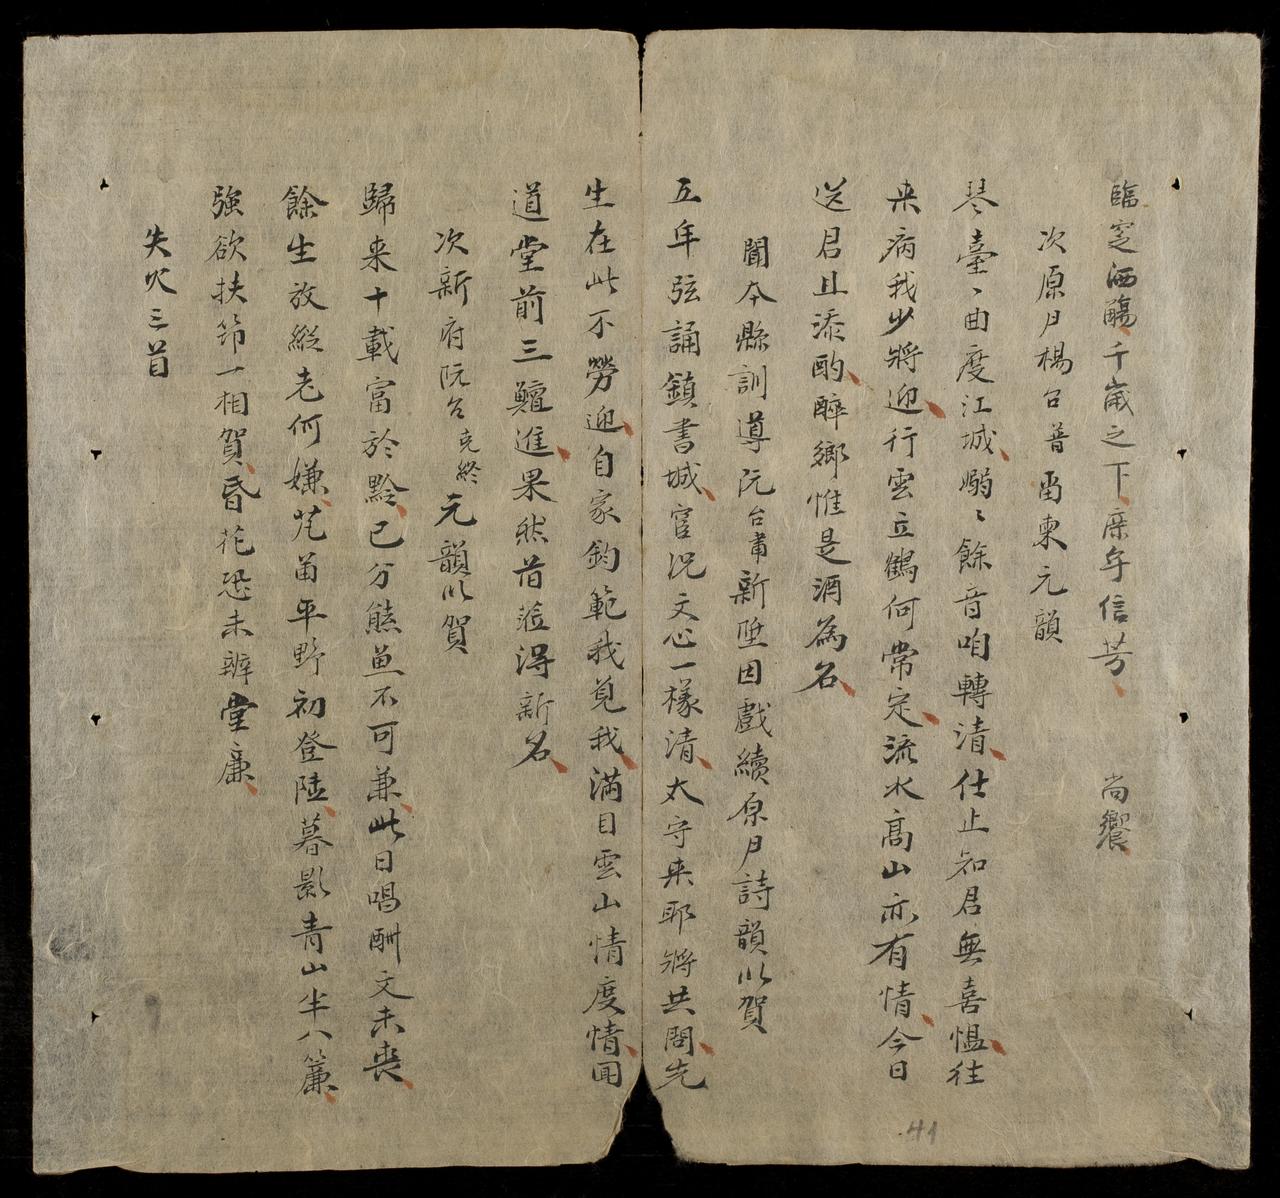 臨窆洒觴千嵗之下庶乎信芳 尚饗
次原尸楊台普畱柬元韻
琴臺〻曲度江城嫋〻餘音咱轉清仕止知君無喜愠往
来病我少將迎行雲立鶴何常定流水髙山亦有情今日
送君且添酌醉鄉惟是酒為名
聞本縣訓導阮台甫新陞因戲續原尸詩韻以賀
五年弦誦鎮書城官况文心一樣清太守来耶將共問先
生在此不勞迎自家鈞範我覓我滿目雲山情度情聞
道堂前三鱣進果然首蓿得新名
次新府阮台克終元韻以賀
歸来十載富於黔已分熊魚不可兼此日唱酬文未喪
餘生放縱老何嫌芃苗平野初登陸暮影青山半入簾
強欲扶筇一相賀昏花恐未辨堂廉
失次三首
41